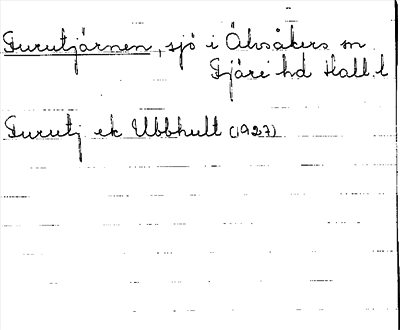 Furutjärnen, sjö i Älvsåkers sn
Fjäre hd Hall. l
Furutj ek Ubbhult (1927)